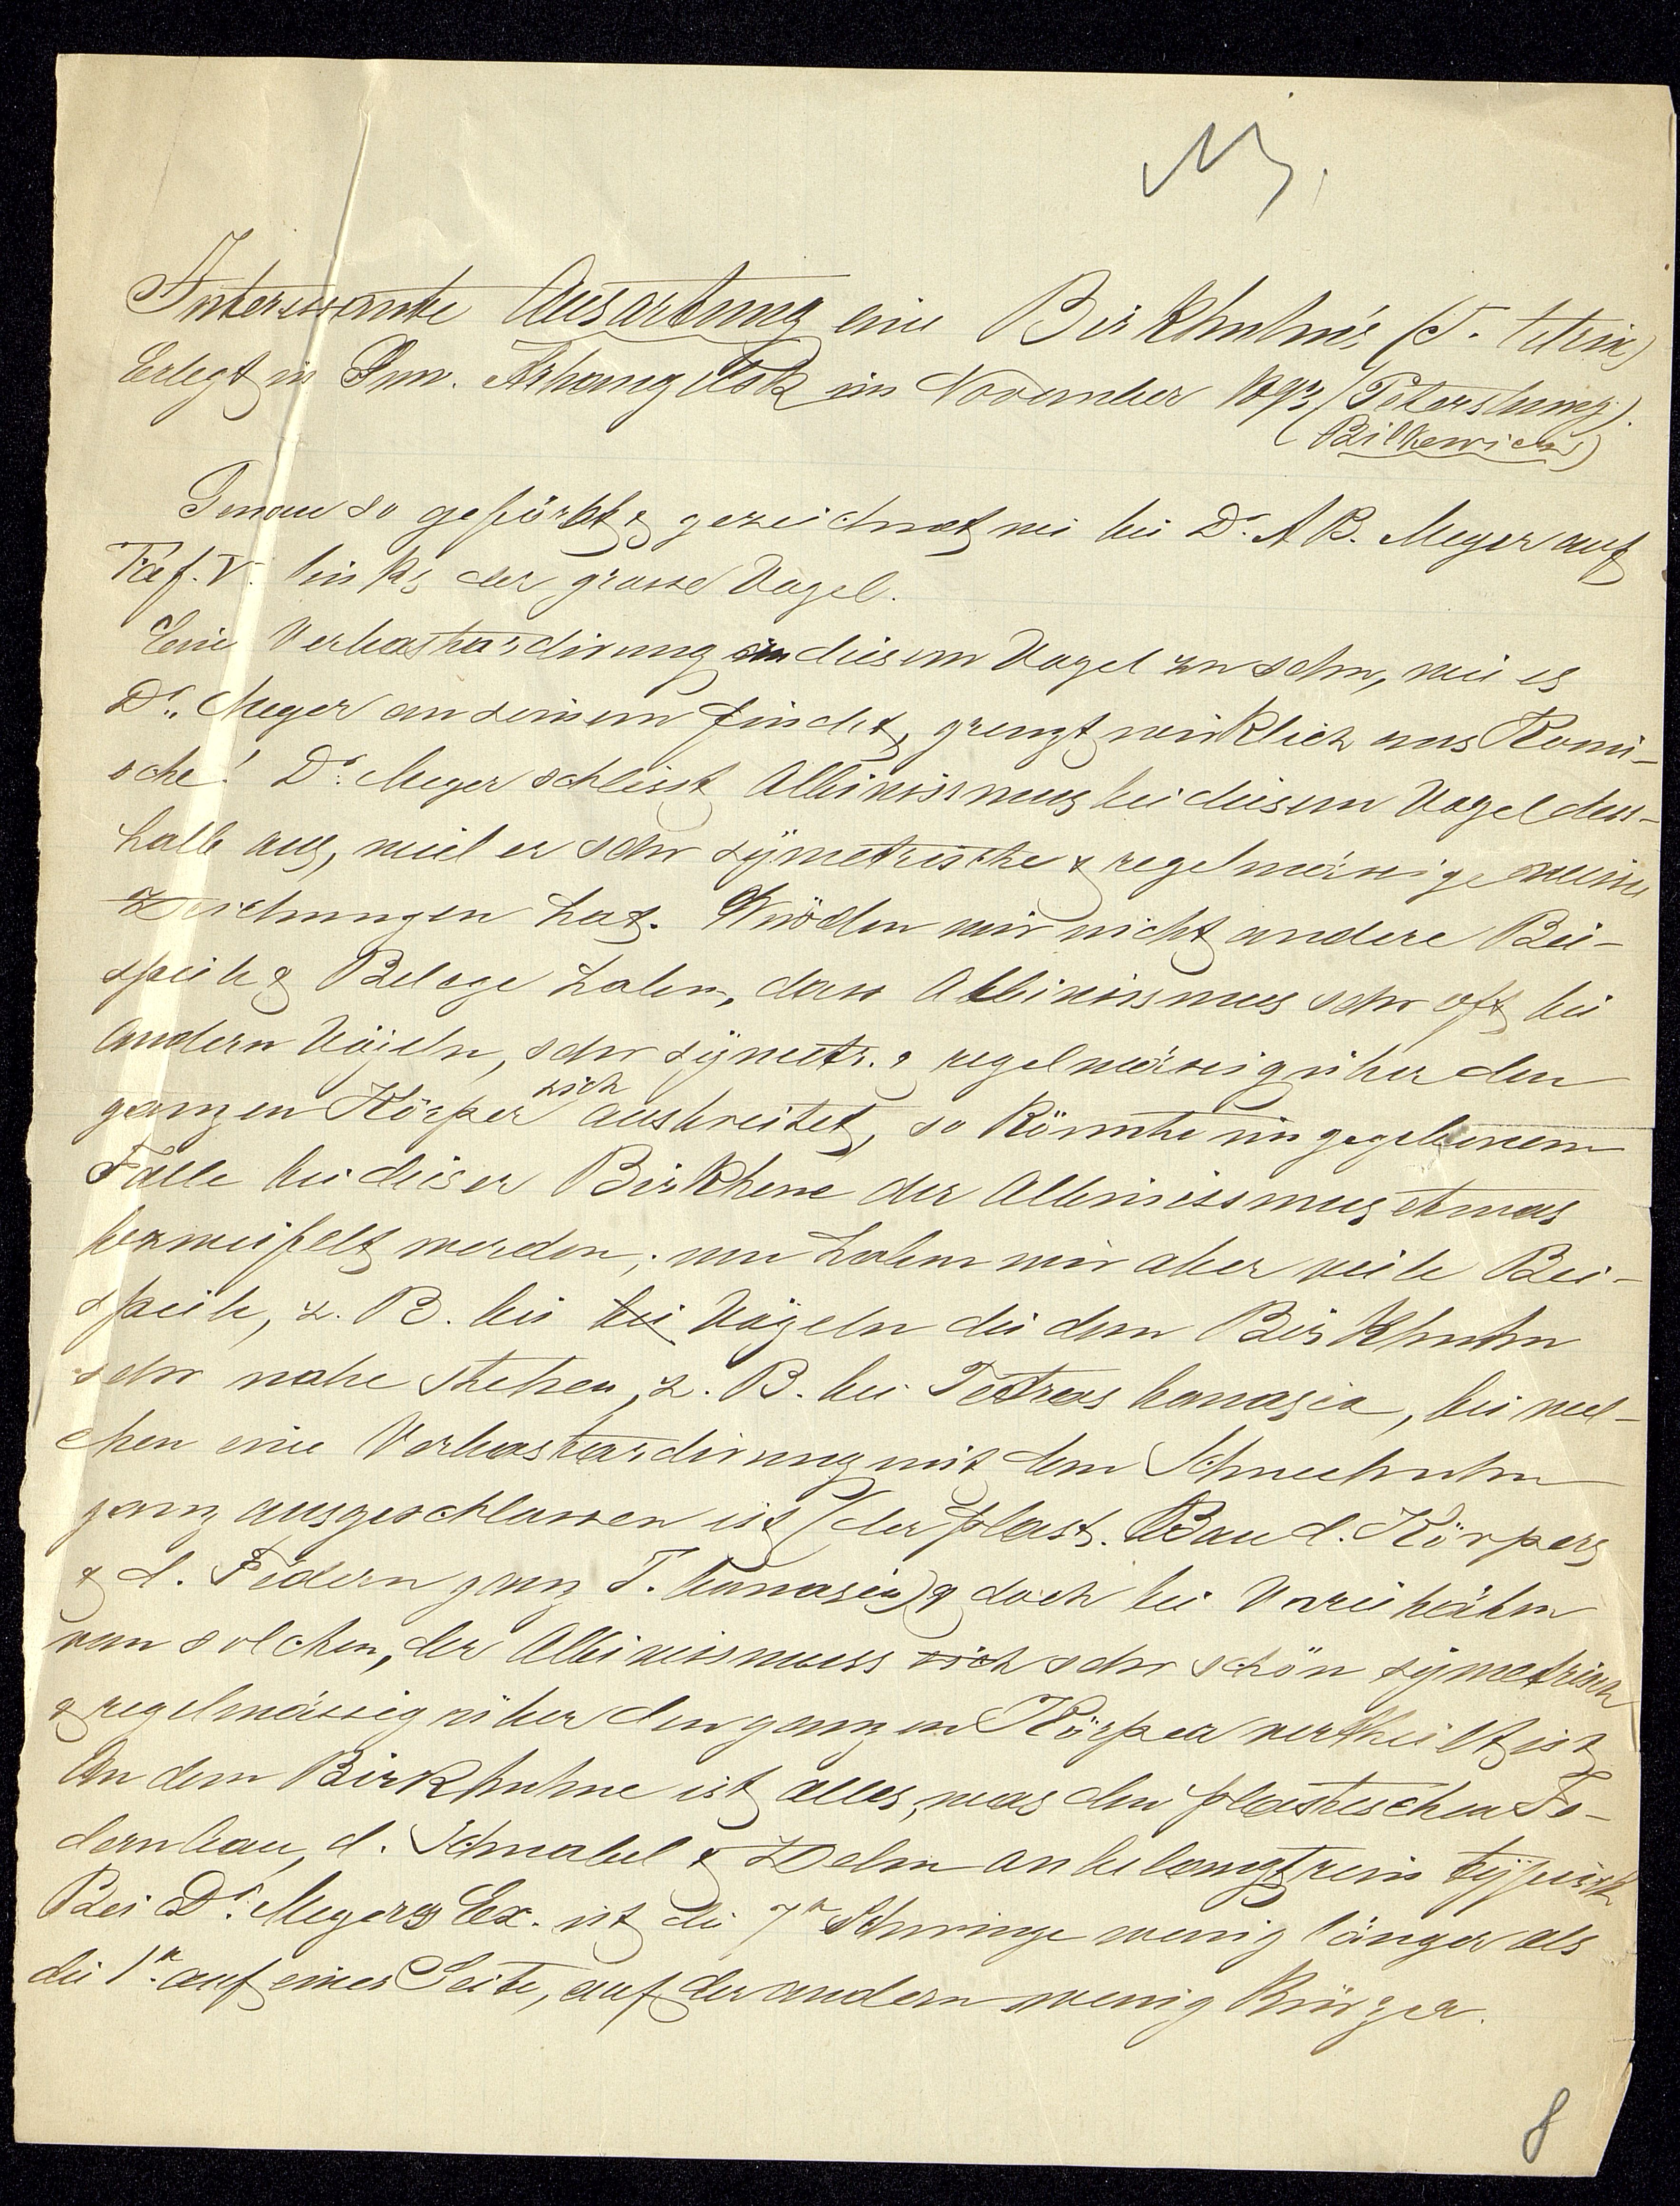 Interessante Ausartung eine Birkhuhn's (T. tetrix)
Erlegt in Guv. Arhangelsk im November 1893 (Petersburg).
(Bilkewicz)
Genau so gefärbt & gezeichnet wie bei Dr. A B. Meyer auf
Taf. V. links der grosse Vogel.
Eine Verbastardirung in diesem Vogel zu sehn, wie es
Dr. Meyer an seinem findet, grenzt wirklich ans Komi-
sche! Dr. Meyer schliest Albinissmus bei diesem Vogel dess-
halb aus, weil er sehr symetrische & regelmässige weisse
Zeichnungen hat. Würden wir nicht andere Bei-
spiele & Belege haben, dass Albinissmus sehr oft bei
andern Vögeln, sehr symetr. & regelmässig über den
ganzen Körper sich ausbreitet, so könnte im gegebenem
Falle bei dieser Birkhene der Albinissmus etwas
bezweifelt werden; nun haben wir aber viele Bei-
spiele, z. B. bei bei Vögeln die dem Birkhuhn
sehr nahe stehen, z. B. bei Tetras bonasia, bei wel-
chen eine Verbastardirung mit dem Schneehuhn
ganz ausgeschlossen ist (der plast. Bau d. Körpers
& d. Federn ganz T. bonasia) & doch bei
von solchen, der Albinissmuss sich sehr schön symetrisch
& regelmässig über den ganzen Körper vertheilt ist
An dem Birkhuhne ist alles, was den plastischen Fe-
dernbau, d. Schnabel & Zehn anbelangt rein typisch
Bei Dr. Meyers Ex. ist die 7te Schwinge wenig länger als
die 1te auf einer Seite, auf der andern wenig kürzer.
8